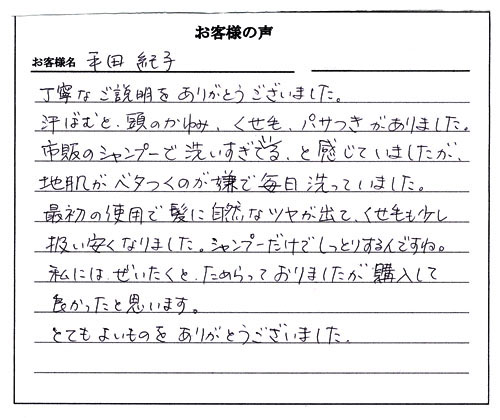 お客様の声
お客様名 平田 紀子
丁寧なご説明をありがとうございました。
汗ばむと、頭のかゆみ、くせ毛、パサつきがありました。
市販のシャンプーで洗いすぎてる、と感じていましたが、
地肌がベタつくのが嫌で毎日洗っていました。
最初の使用で髪に自然なツヤが出て、くせ毛も少し
扱い安くなりました。シャンプーだけでしっとりするんですね。
私には、ぜいたくと、ためらっておりましたが購入して
良かったと思います。
とてもよいものをありがとうございました。